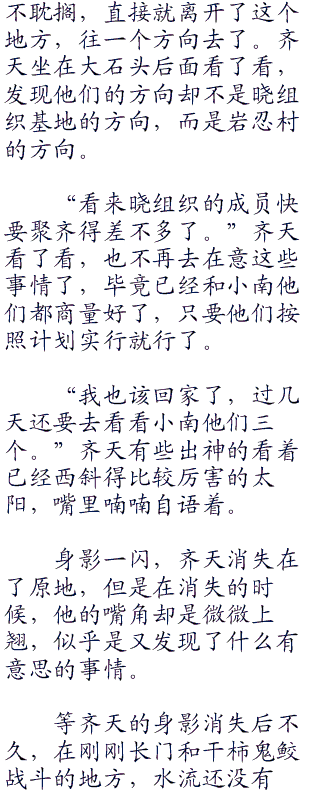 不耽搁，直接就离开了这个
地方，往一个方向去了。齐
天坐在大石头后面看了看，
发现他们的方向却不是晓组
织基地的方向，而是岩忍村
的方向。
“看来晓组织的成员快
要聚齐得差不多了。”齐天
看了看，也不再去在意这些
事情了，毕竟已经和小南他
们都商量好了，只要他们按
照计划实行就行了。
“我也该回家了，过几
天还要去看看小南他们三
个。”齐天有些出神的看着
已经西斜得比较厉害的太
阳，嘴里喃喃自语着。
身影一闪，齐天消失在
了原地，但是在消失的时
候，他的嘴角却是微微上
翘，似乎是又发现了什么有
意思的事情。
等齐天的身影消失后不
久，在刚刚长门和干柿鬼鲛
战斗的地方，水流还没有